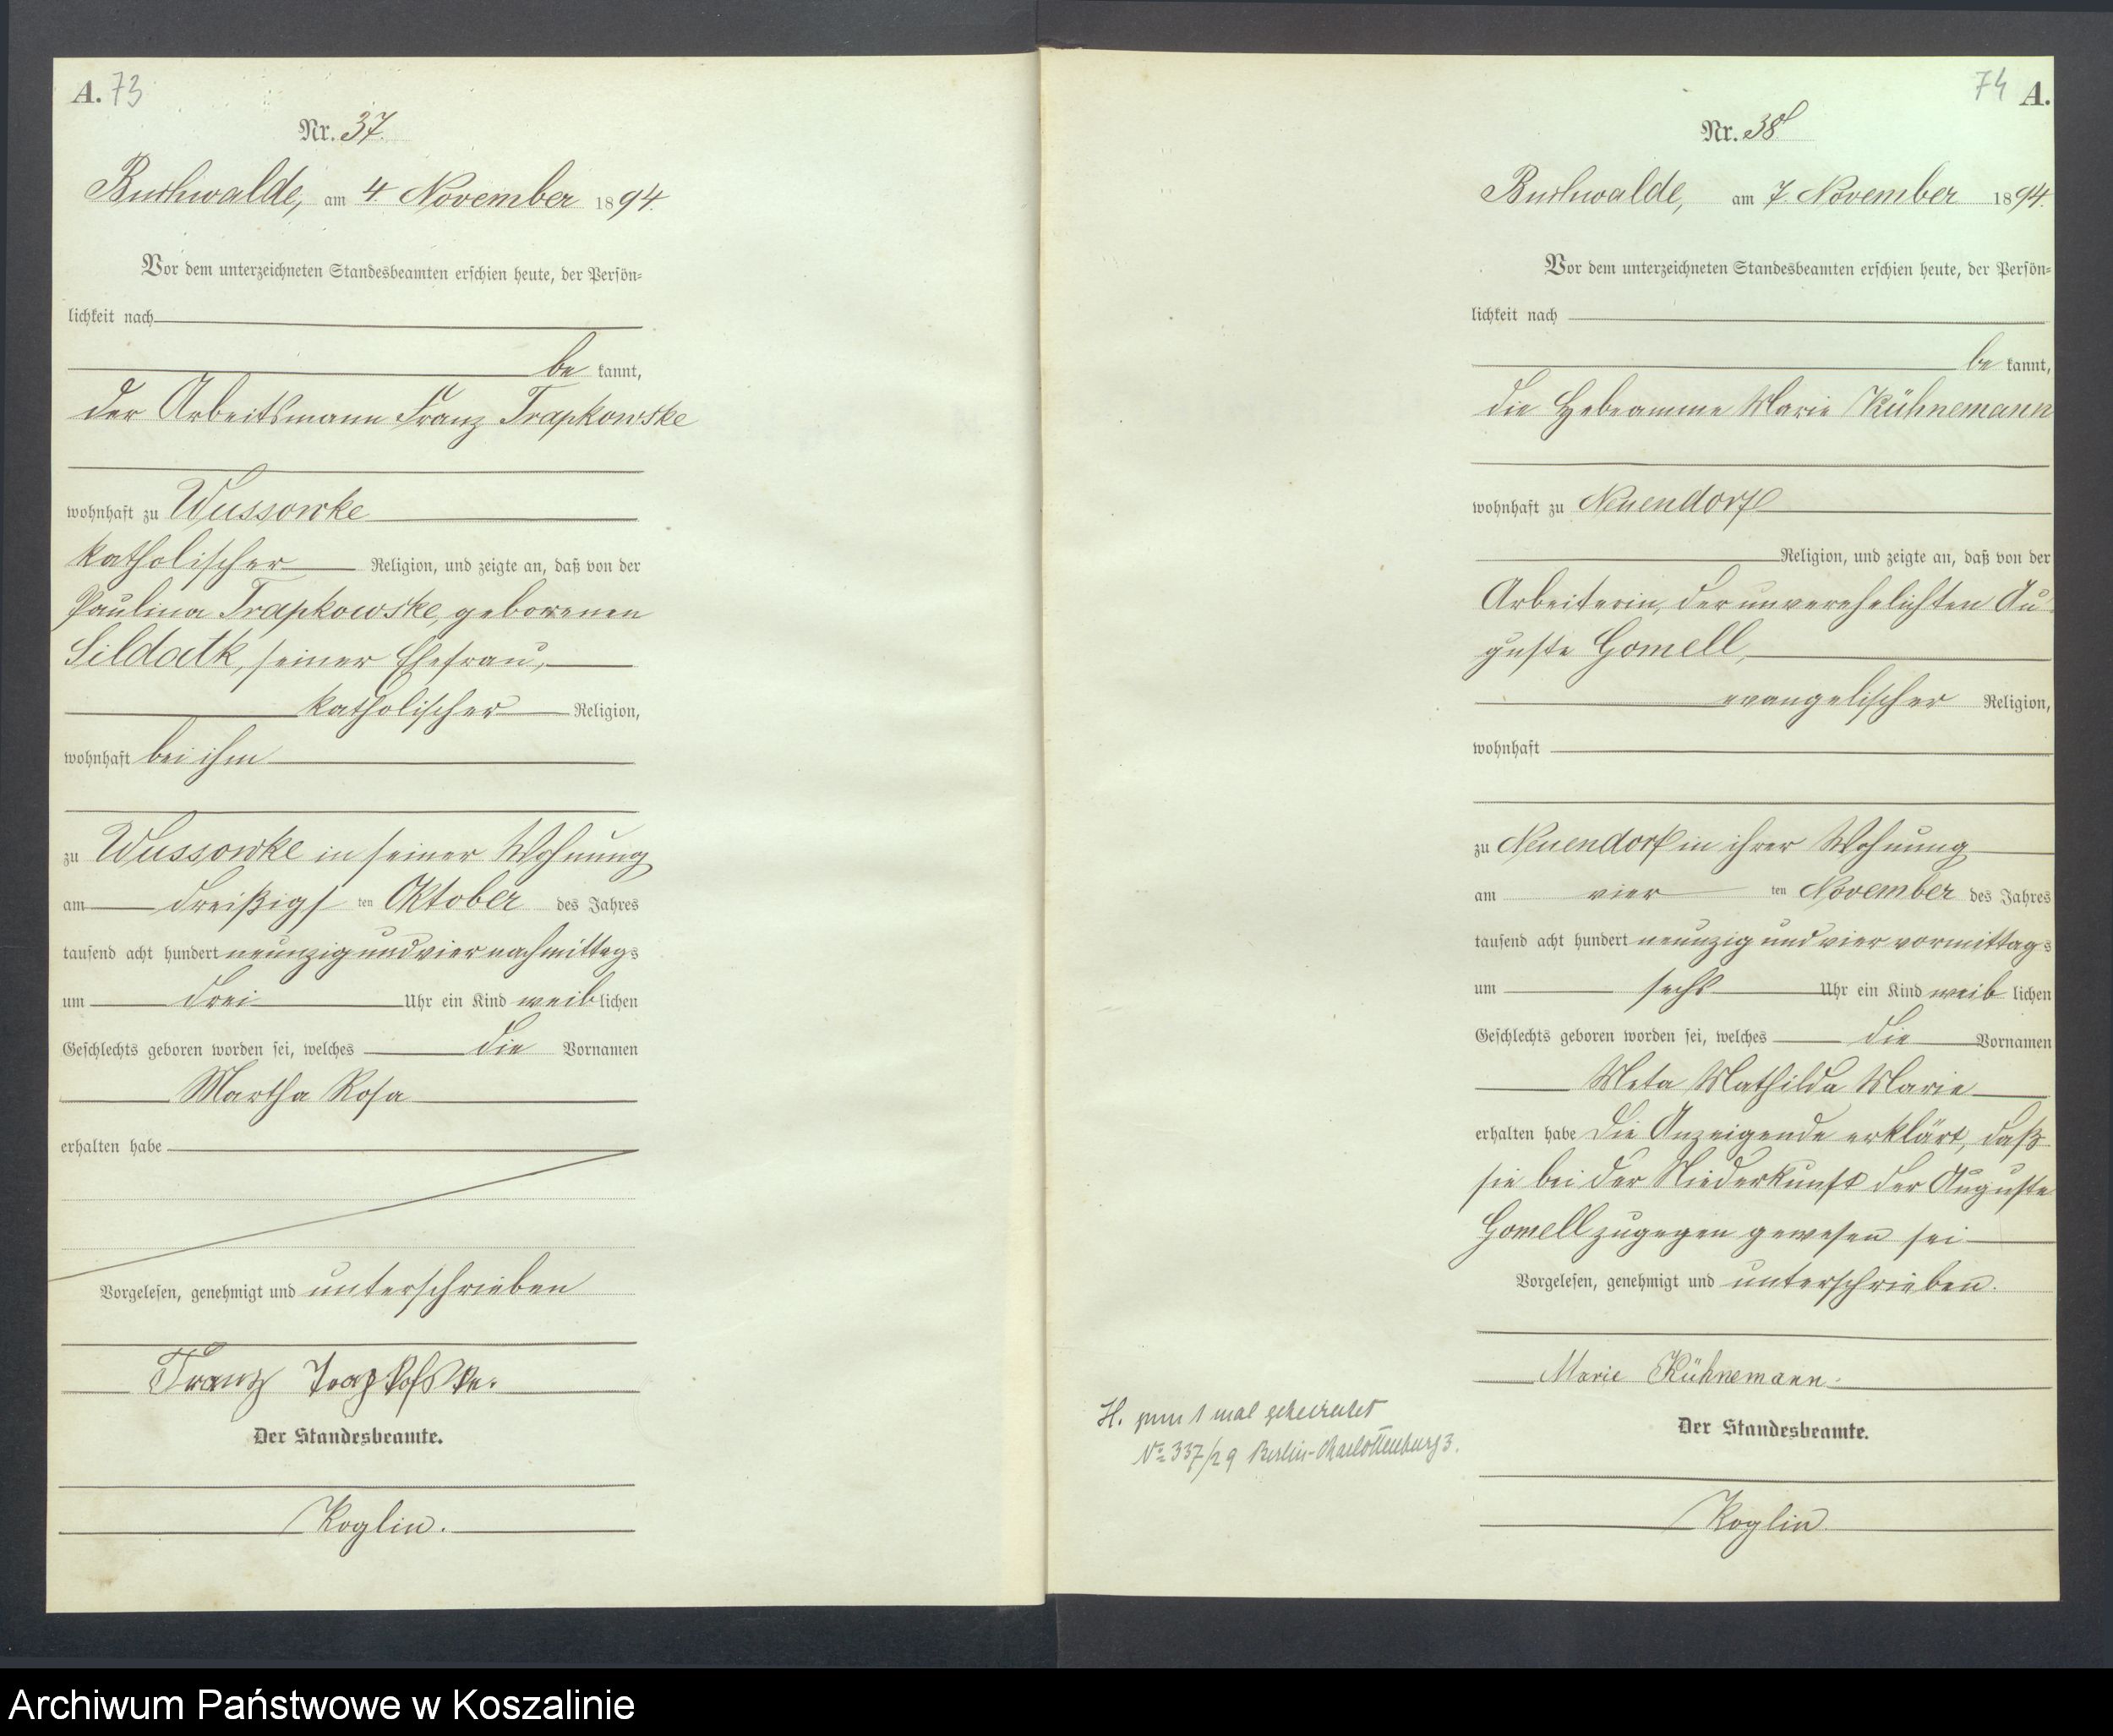 A. 73
Nr. 37.
Buchwalde, am 4 November 1894.
Vor dem unterzeichneten Standesbeamten erschien heute, der Persön-
lichkeit nach
be kannt,
der Arbeitsmann Franz Trapkowske
wohnhaft zu Wussowke
katholischer Religion, und zeigte an, daß von der
Paulina Trapkowske, geborenen
Sildatk, seiner Ehefrau,
katholischer Religion,
wohnhaft bei ihm
zu Wussowke in seiner Wohnung
am dreißigs ten Oktober des Jahres
tausend acht hundert neunzig und vier nachmittags
um drei Uhr ein Kind weiblichen
Geschlechts geboren worden sei, welches die Vornamen
Martha Rosa
erhalten habe
Vorgelesen, genehmigt und unterschrieben
Franz Trapkofske.
Der Standesbeamte.
Koglin.
74 A.
Nr. 38
Buchwalde, am 7. November 1894.
Vor dem unterzeichneten Standesbeamten erschien heute, der Persön-
lichkeit nach
be kannt,
die Hebeamme Marie Kühnemann
wohnhaft zu Neuendorf
Religion, und zeigte an, daß von der
Arbeiterin, der unverehelichten Au-
guste Gomell,
evangelischer Religion,
wohnhaft
zu Neuendorf in ihrer Wohnung
am vier ten November des Jahres
tausend acht hundert neunzig und vier vormittags
um sechs Uhr ein Kind weib lichen
Geschlechts geboren worden sei, welches die Vornamen
Meta Mathilda Marie
erhalten habe Die Anzeigende erklärt, daß
sie bei der Niederkunft der Auguste
Gomell zugegen gewesen sei
Vorgelesen, genehmigt und unterschrieben.
Marie Kühnemann.
H. zum 1 mal geheiratet
No 337/29 Berlin-Charlottenburg 3.
Der Standesbeamte.
Koglin
Archiwum Państwowe w Koszalinie